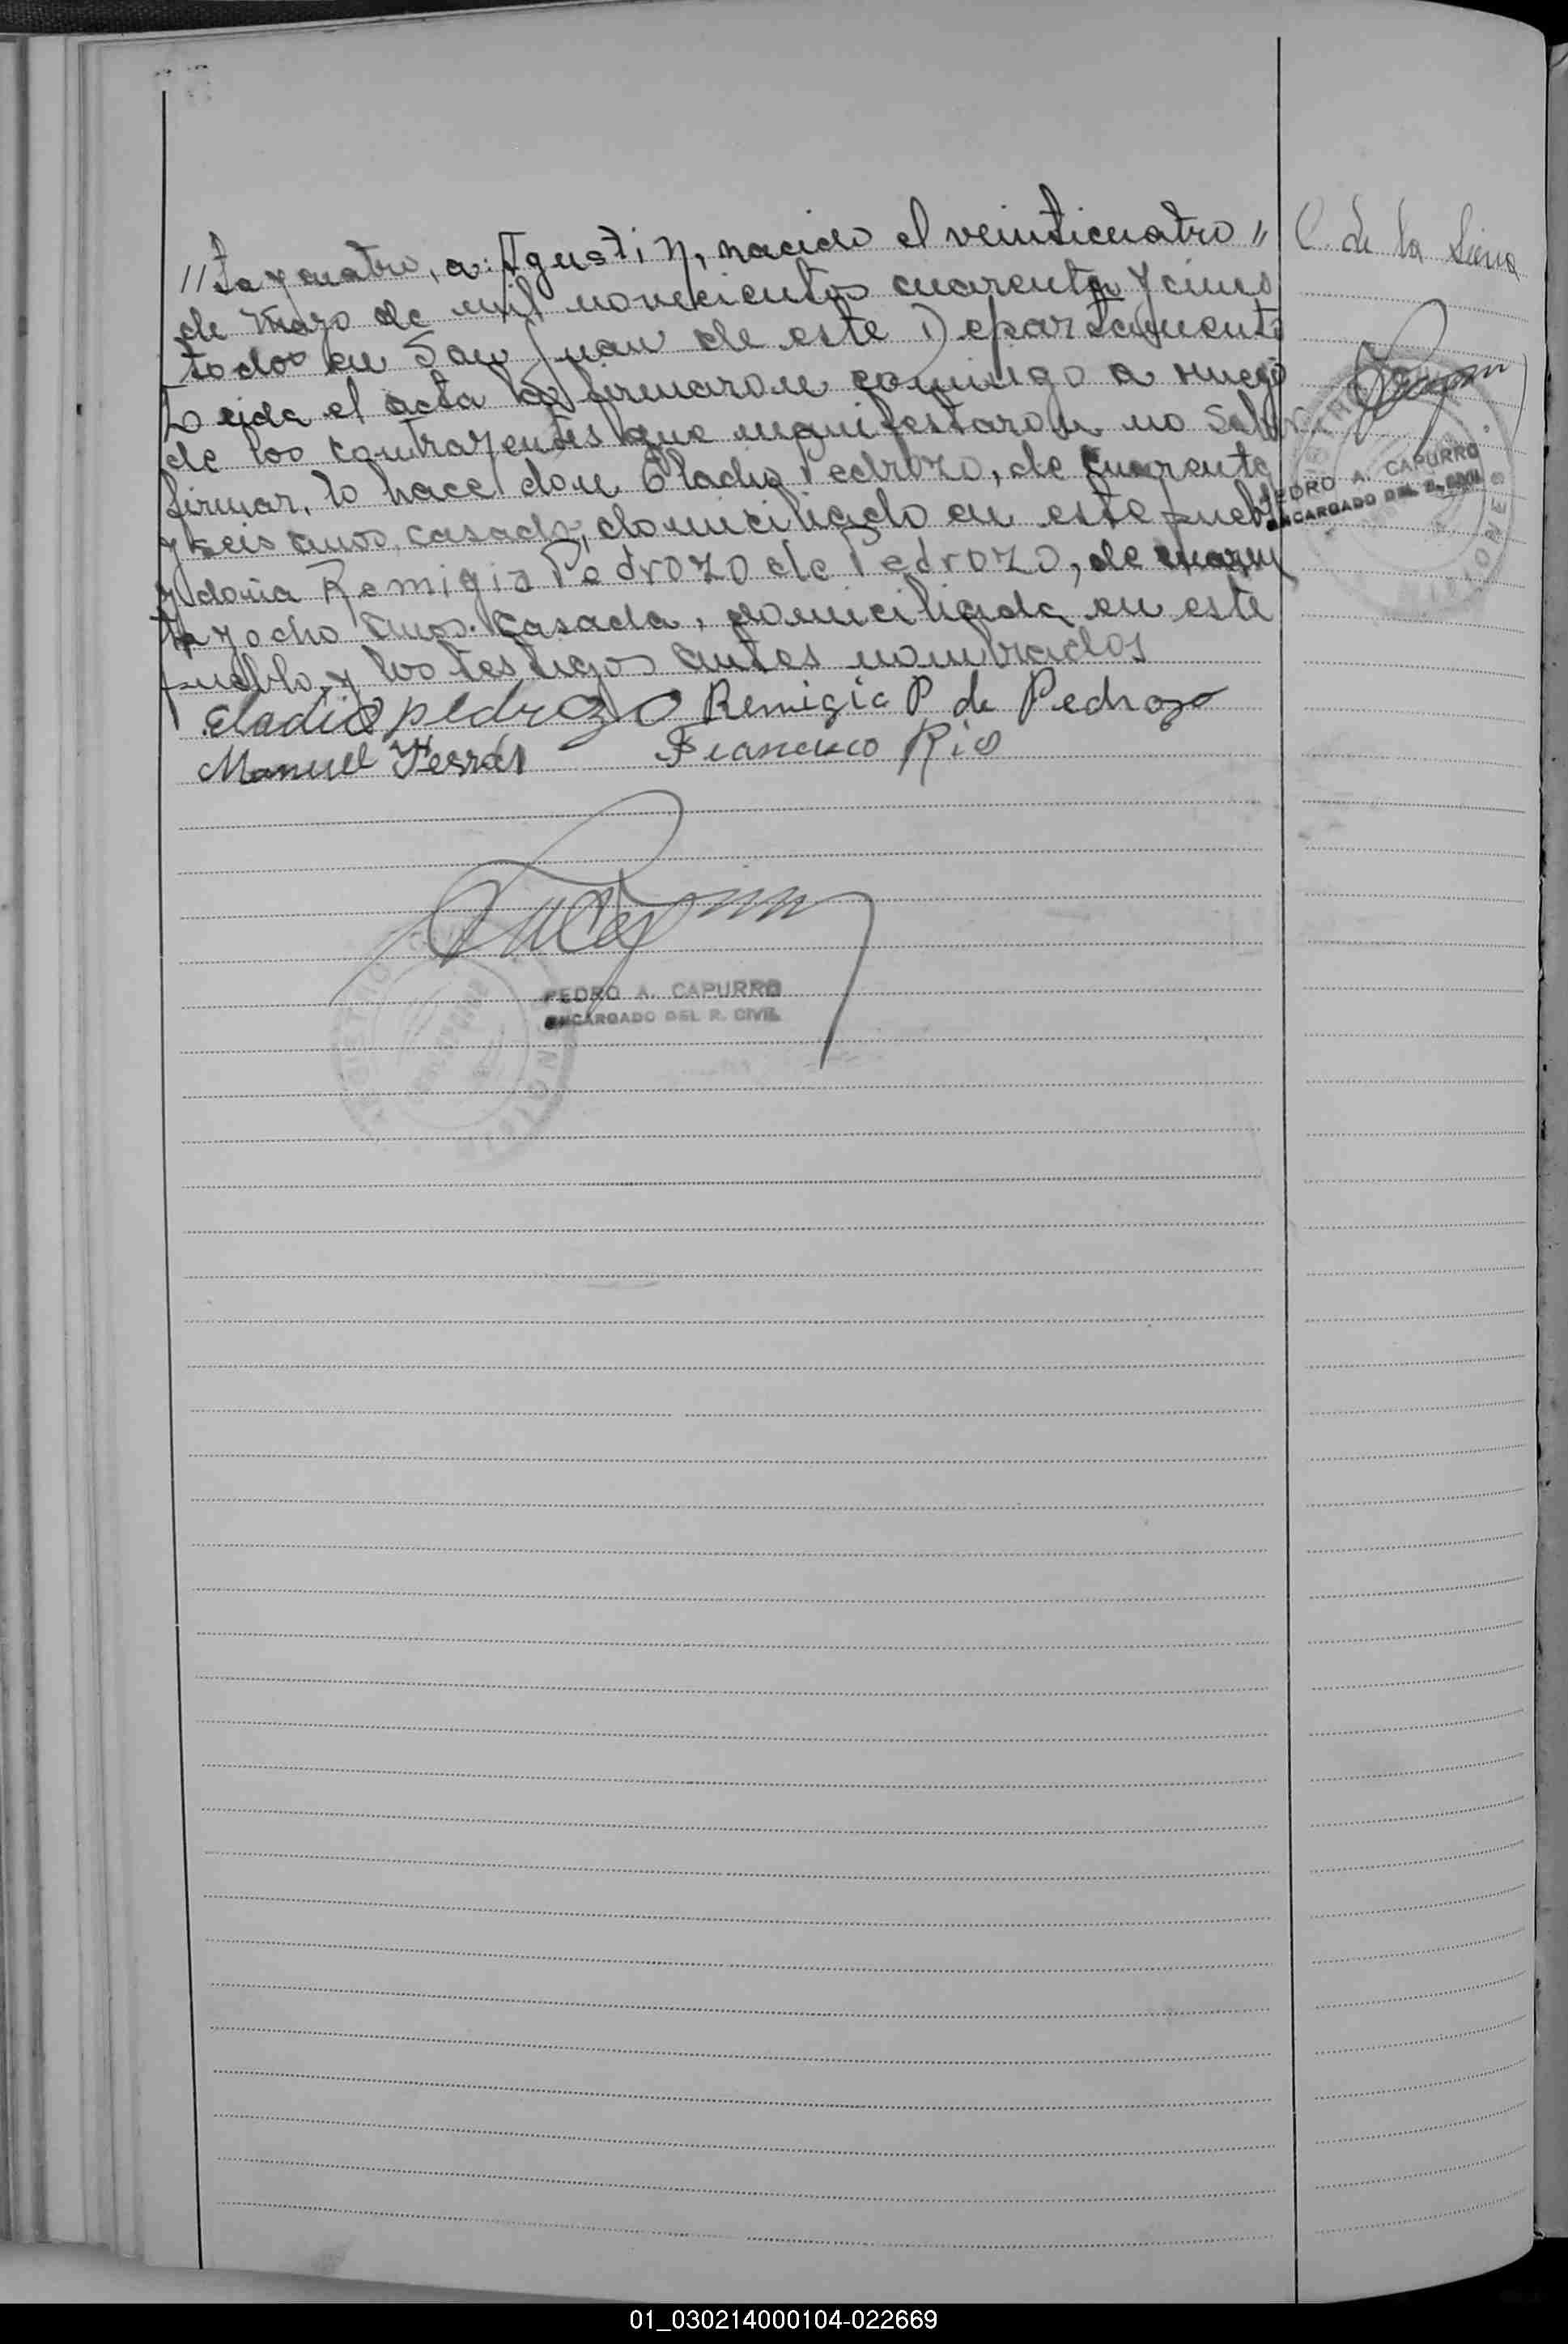 //ta y cuatro, a: Agustin, nacido el veinticuatro //
de mayo de mil novecientos cuarenta y cinco
todos en San Juan de este Departamento
Leida el acta la firmaron conmigo a ruego
de los contrayentes que manifestaron no saber
firmar, lo hace don Eladio Pedrozo, de cuarenta
y seis años, casado, domiciliado en este pueblo
y doña Remigia Pedrozo de Pedrozo, de cuaren
ta y ocho años. casada, domiciliada en este
pueblo, y los testigos antes nombrados
Eladio pedrozo Remigia P de Pedrozo
Manuel Francisco Rio
PEDRO A. CAPURRO
ENCARGADO DEL R. CIVIL
C. de la
PEDRO A. CAPURRO
ENCARGADO DEL R. CIVIL
01_030214000104-022669